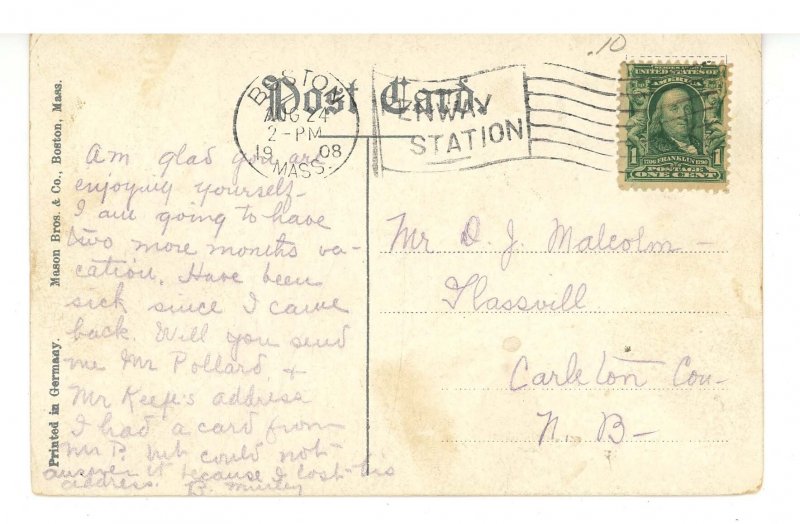 .10
Post Card.
BOSTON
AUG 24
2-PM
19 08
MASS.
FENWAY
STATION
UNITED STATES OF
AMERICA
1 1706 FRANKLIN 1790 1
POSTAGE
ONE CENT
Mason Bros. & Co., Boston, Mass.
Printed in Germany.
Am glad you are
enjoying yourself-
I am going to have
two more months va-
cation. Have been
sick since I came
back. Will you send
me Mr Pollard &
Mr Keefe's address
I had a card from
Mr P. but could not-
answer it because I lost his
address.
Mr D. J. Malcolm-
Glassvill
Carleton Cou-
N. B-